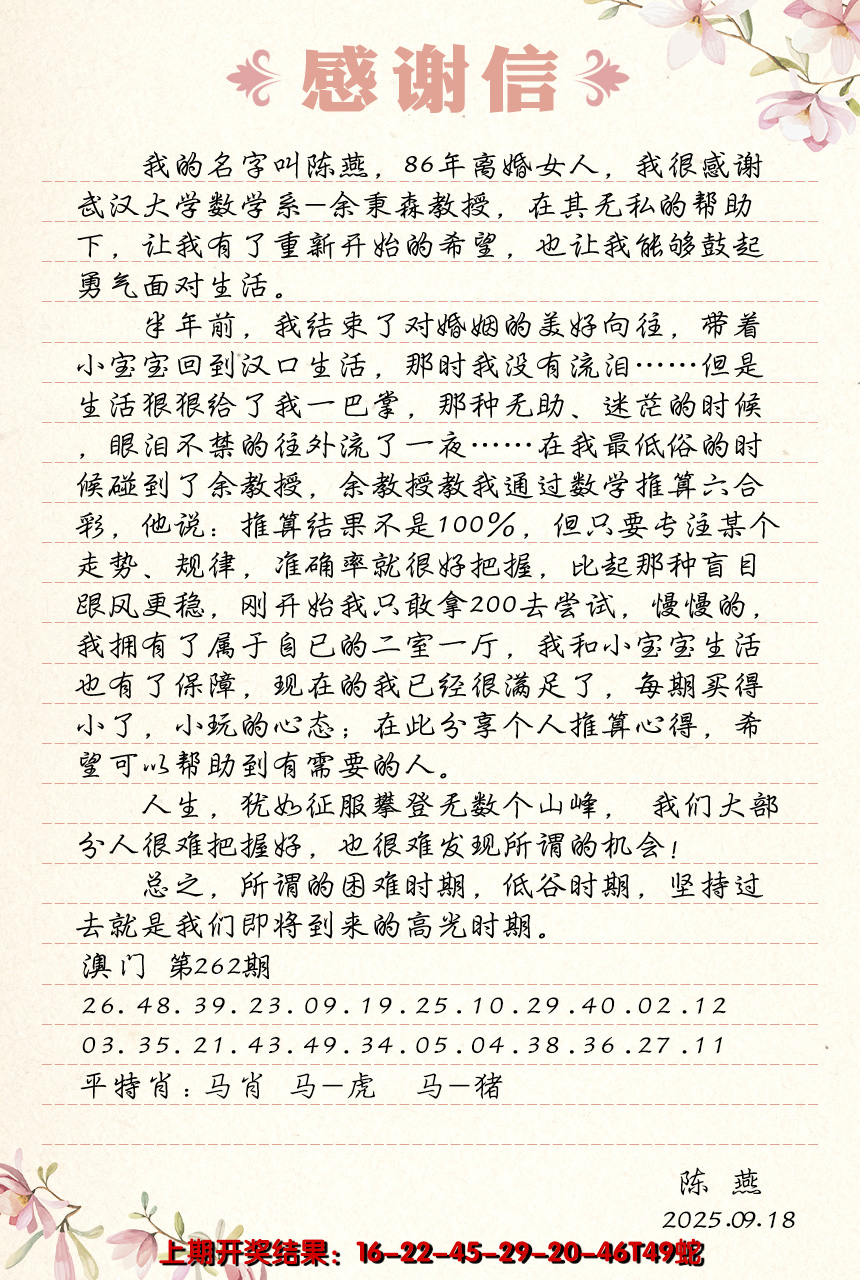 感谢信
我的名字叫陈燕，86年离婚女人，我很感谢
武汉大学数学系—余秉森教授，在其无私的帮助
下，让我有了重新开始的希望，也让我能够鼓起
勇气面对生活。
半年前，我结束了对婚姻的美好向往，带着
小宝宝回到汉口生活，那时我没有流泪……但是
生活狠狠给了我一巴掌，那种无助、迷茫的时候
，眼泪不禁的往外流了一夜……在我最低俗的时
候碰到了余教授，余教授教我通过数学推算六合
彩，他说：推算结果不是100%，但只要专注某个
走势、规律，准确率就很好把握，比起那种盲目
跟风更稳，刚开始我只敢拿200去尝试，慢慢的，
我拥有了属于自己的二室一厅，我和小宝宝生活
也有了保障，现在的我已经很满足了，每期买得
小了，小玩的心态；在此分享个人推算心得，希
望可以帮助到有需要的人。
人生，犹如征服攀登无数个山峰， 我们大部
分人很难把握好，也很难发现所谓的机会！
总之，所谓的困难时期，低谷时期，坚持过
去就是我们即将到来的高光时期。
澳门 第262期
26.48.39.23.09.19.25.10.29.40.02.12
03.35.21.43.49.34.05.04.38.36.27.11
平特肖：马肖 马—虎 马—猪
陈 燕
2025.09.18
上期开奖结果：16-22-45-29-20-46T49蛇